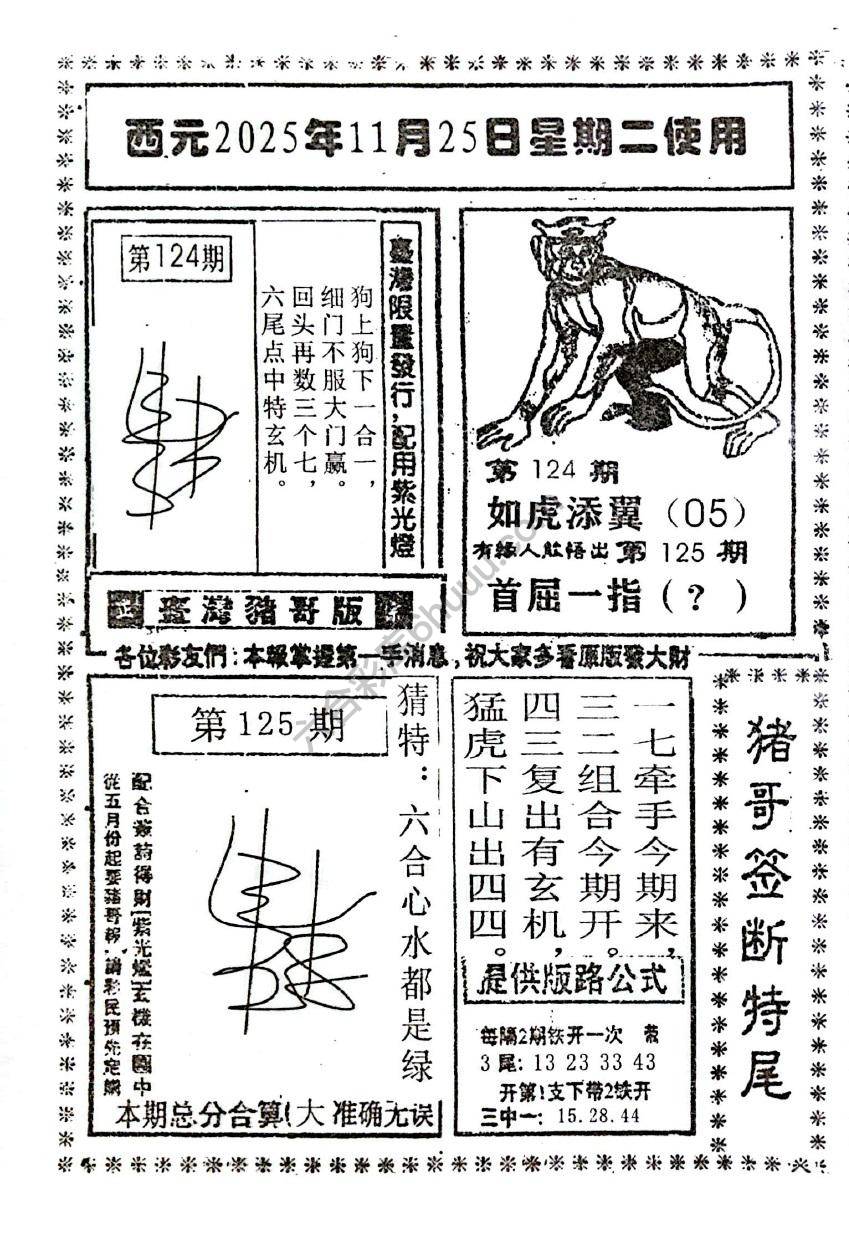 西元2025年11月25日星期二使用
第124期
臺灣限量發行,配用紫光燈
狗上狗下一合一,
细门不服大门赢。
回头再数三个七,
六尾点中特玄机。
第 124 期
如虎添翼(05)
有緣人能悟出 第 125 期
首屈一指(?)
正 臺灣豬哥版
各位彩友們:本報掌握第一手消息,祝大家多看原版發大財
第125期
猜特:六合心水都是绿
配合簽詩得財(紫光燈)玄機在圖中
從五月份起要豬哥報,請彩民預先定購
本期总分合算(大 准确无误
一七牵手今期来,
三二组合今期开。
四三复出有玄机,
猛虎下山出四四。
提供版路公式
每隔2期铁开一次 带
3尾: 13 23 33 43
开第1支下带2铁开
三中一: 15.28.44
猪哥签断特尾
六合彩库6huuu.com